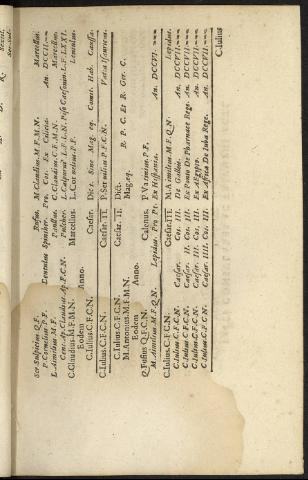 Ser Sulpicius Q.F. Rufus. M. Claudius M.F.M.N. Marcellus.
P. Cornelius P.F. Lentulus Spinther. Pro. Cos. Ex Cilicia. An. DCII.
L. Aemilius M.F. Paullus. C. Claudius C.F.M.N. Marcellus.
Cens. Ap. Claudius Ap. F.C.N. Pulcher. L. Calpurni' L.F.L.N. Piso Caesonin. L.F. LXXI.
C. Claudius M.F.M.N. Marcellus. L. Cornelius P.F. Lentulus.
Eodem Anno.
C. Iulius. C.F.C.N. Caesar. Dict. Sine Mag. eq. Comit. Hab. Caussa.
C. Iulius. C.F.C.N. Caesar. II. P. Servilius P.F.C.N. Vatia Isauricus.
C. Iulius. C.F.C.N. Caesar. II. Dict.
M. Antonius. M.F.M.N. Mag. eq. R. P. C. Et R. Ger. C.
Eodem Anno.
Q. Fufius Q.F.C.N. Calenus. P. Vatinius. P.F.
M. Aimilius M.F.Q.N. Lepidus. Pro Pr. Ex Hispania. An. DCCVI.
C. Iulius. C.F.C.N. Caesar. III. M. Aimilius. M.F.Q.N. Lepidus.
C. Iulius C.F.C.N. Caesar. Cos. III. De Galleis. An. DCCVII.
C. Iulius C.F.C.N. Caesar. II. Cos. III. Ex Ponto De Pharnace Rege. An. DCCVII.
C. Iulius C.F.C.N. Caesar. III. Cos. III. Ex AEgypto. An. DCCVII.
C. Iulius C.F.C.N. Caesar IIII. Cos. III. Ex Africa De Iuba Rege. An. DCCVII.
C. Iulius